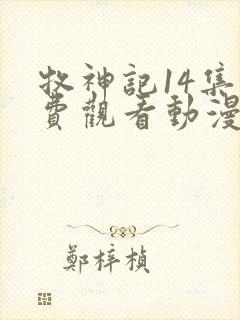 牧神記14集
費觀看動漫
鄭梓楨